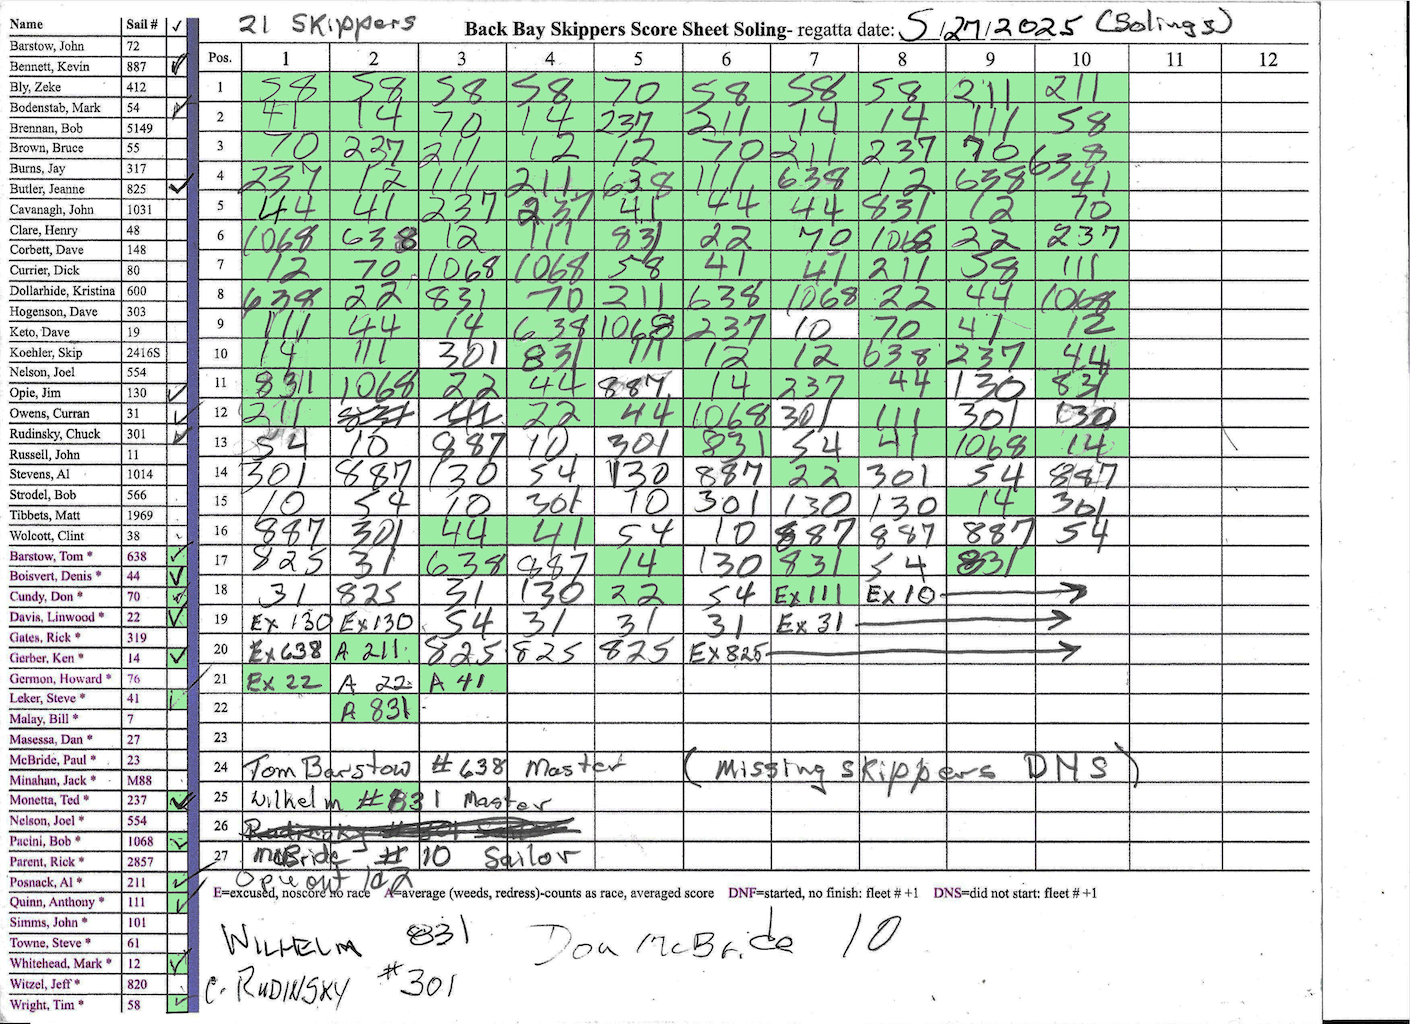 21 SKippers
Back Bay Skippers Score Sheet Soling- regatta date: 5/27/2025 (Solings)
Name Sail # ✓
Barstow, John 72
Bennett, Kevin 887 ✓
Bly, Zeke 412
Bodenstab, Mark 54 ✓
Brennan, Bob 5149
Brown, Bruce 55
Burns, Jay 317
Butler, Jeanne 825 ✓
Cavanagh, John 1031
Clare, Henry 48
Corbett, Dave 148
Currier, Dick 80
Dollarhide, Kristina 600
Hogenson, Dave 303
Keto, Dave 19
Koehler, Skip 2416S
Nelson, Joel 554
Opie, Jim 130 ✓
Owens, Curran 31 ✓
Rudinsky, Chuck 301 ✓
Russell, John 11
Stevens, Al 1014
Strodel, Bob 566
Tibbets, Matt 1969
Wolcott, Clint 38
Barstow, Tom * 638 ✓
Boisvert, Denis * 44 ✓
Cundy, Don * 70 ✓
Davis, Linwood * 22 ✓
Gates, Rick * 319
Gerber, Ken * 14 ✓
Germon, Howard * 76
Leker, Steve * 41
Malay, Bill * 7
Masessa, Dan * 27
McBride, Paul * 23
Minahan, Jack * M88
Monetta, Ted * 237 ✓
Nelson, Joel * 554
Pacini, Bob * 1068 ✓
Parent, Rick * 2857
Posnack, Al * 211 ✓
Quinn, Anthony * 111 ✓
Simms, John * 101
Towne, Steve * 61
Whitehead, Mark * 12 ✓
Witzel, Jeff * 820
Wright, Tim * 58 ✓
Pos. 1 2 3 4 5 6 7 8 9 10 11 12
1 58 58 58 58 70 58 58 58 211 211
2 41 14 70 14 237 211 14 14 111 58
3 70 237 211 12 12 70 211 237 70 638
4 237 12 111 211 638 111 638 12 638 41
5 44 41 237 237 41 44 44 831 12 70
6 1068 638 12 111 831 22 70 1068 22 237
7 12 70 1068 1068 58 41 41 211 58 111
8 638 22 831 70 211 638 1068 22 44 1068
9 111 44 14 638 1068 237 10 70 41 12
10 14 111 301 831 111 12 12 638 237 44
11 831 1068 22 44 887 14 237 44 130 831
12 211 831 41 22 44 1068 301 111 301 130
13 54 10 887 10 301 831 54 41 1068 14
14 301 887 130 54 130 887 22 301 54 887
15 10 54 10 301 10 301 130 130 14 301
16 887 301 44 41 54 10 887 887 887 54
17 825 31 638 887 14 130 831 54 831
18 31 825 31 130 22 54 Ex 111 Ex 10 →
19 Ex 130 Ex 130 54 31 31 31 Ex 31 →
20 Ex 638 A 211 825 825 825 Ex 825 →
21 Ex 22 A 22 A 41
22 A 831
23
24 Tom Barstow #638 Master (Missing skippers DNS)
25 Wilhelm #831 Master
26 Rudinsky # 301
27 McBride # 10 Sailor
Opie out 1a2
E=excused, noscore no race A=average (weeds, redress)-counts as race, averaged score DNF=started, no finish: fleet # +1 DNS=did not start: fleet # +1
WILHELM 831 Don McBride 10
C. RUDINSKY #301